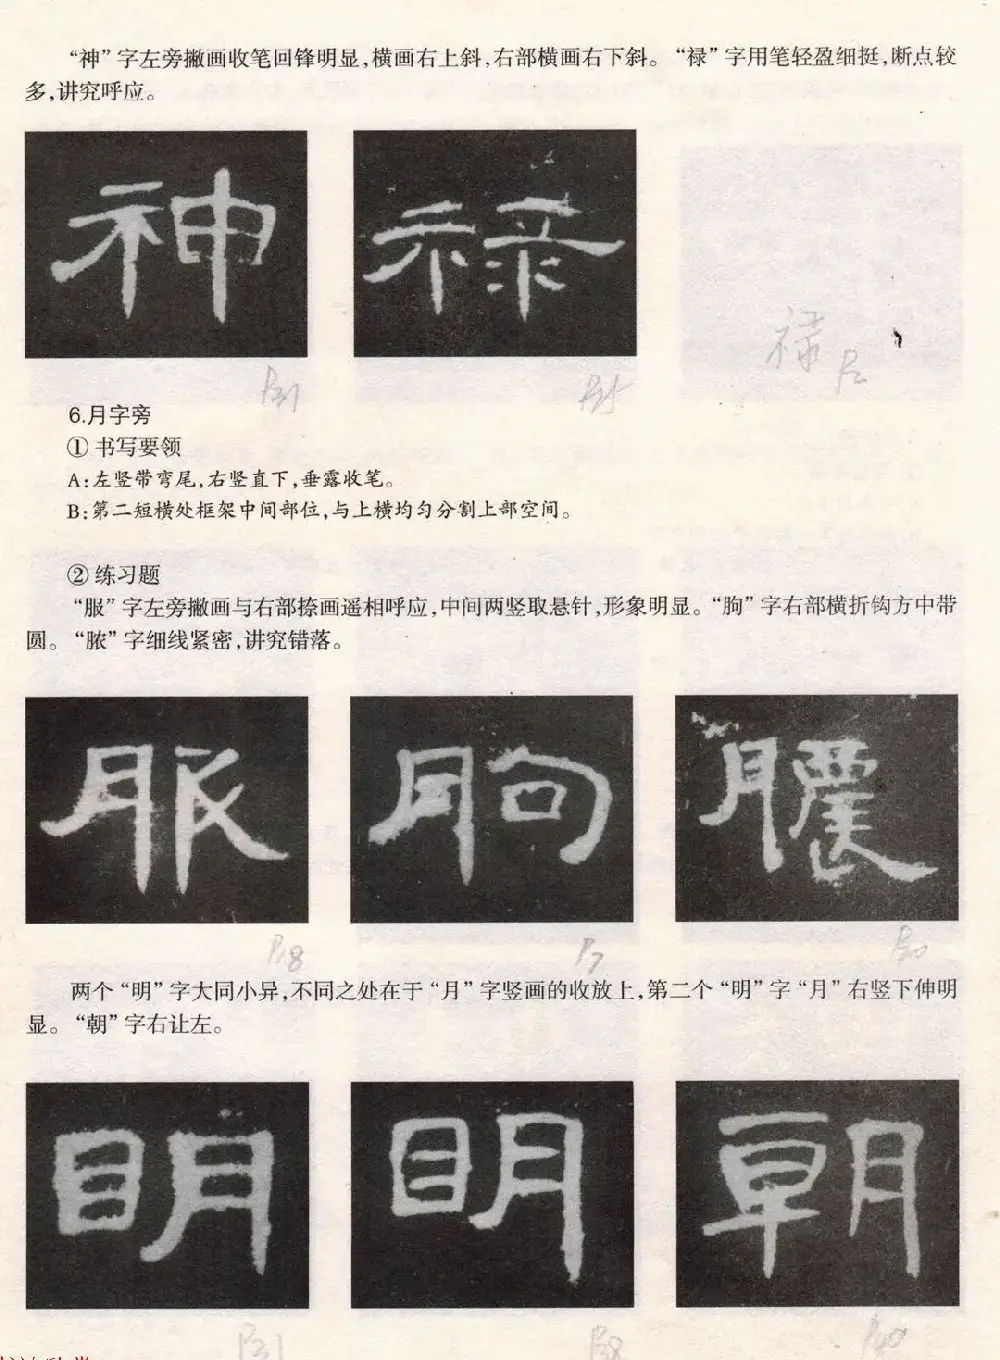 “神”字左旁撇画收笔回锋明显,横画右上斜,右部横画右下斜。“禄”字用笔轻盈细挺,断点较
多,讲究呼应。
神 禄
禄
P31 P25
6.月字旁
① 书写要领
A:左竖带弯尾,右竖直下,垂露收笔。
B:第二短横处框架中间部位,与上横均匀分割上部空间。
② 练习题
“服”字左旁撇画与右部捺画遥相呼应,中间两竖取悬针,形象明显。“朐”字右部横折钩方中带
圆。“脓”字细线紧密,讲究错落。
服 朐
P18 P7
两个“明”字大同小异,不同之处在于“月”字竖画的收放上,第二个“明”字“月”右竖下伸明
显。“朝”字右让左。
明 明 朝
P31 P38